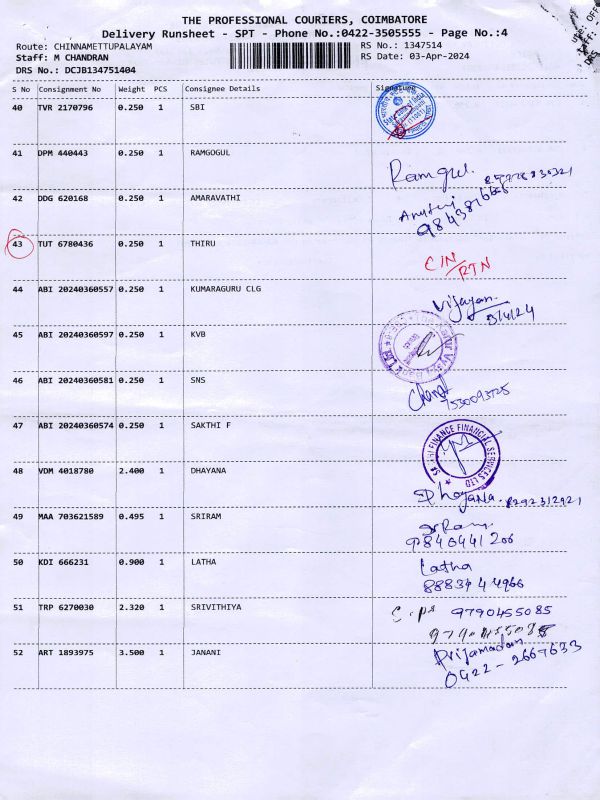 THE PROFESSIONAL COURIERS, COIMBATORE
Delivery Runsheet - SPT - Phone No.:0422-3505555 - Page No.:4
Route: CHINNAMETTUPALAYAM
Staff: M CHANDRAN
DRS No.: DCJB134751404
RS No.: 1347514
RS Date: 03-Apr-2024
S No Consignment No Weight PCS Consignee Details Signature
40 TVR 2170796 0.250 1 SBI
41 DPM 440443 0.250 1 RAMGOGUL
42 DDG 620168 0.250 1 AMARAVATHI
43 TUT 6780436 0.250 1 THIRU CIN/RTN
44 ABI 20240360557 0.250 1 KUMARAGURU CLG Vijayan 3/4/24
45 ABI 20240360597 0.250 1 KVB
46 ABI 20240360581 0.250 1 SNS
47 ABI 20240360574 0.250 1 SAKTHI F FINANCE FINANCIAL SERVICES LTD
48 VDM 4018780 2.400 1 DHAYANA
49 MAA 703621589 0.495 1 SRIRAM
9840441206
50 KDI 666231 0.900 1 LATHA Latha
51 TRP 6270030 2.320 1 SRIVITHIYA 9790455085
52 ART 1893975 3.500 1 JANANI
0422-2667633